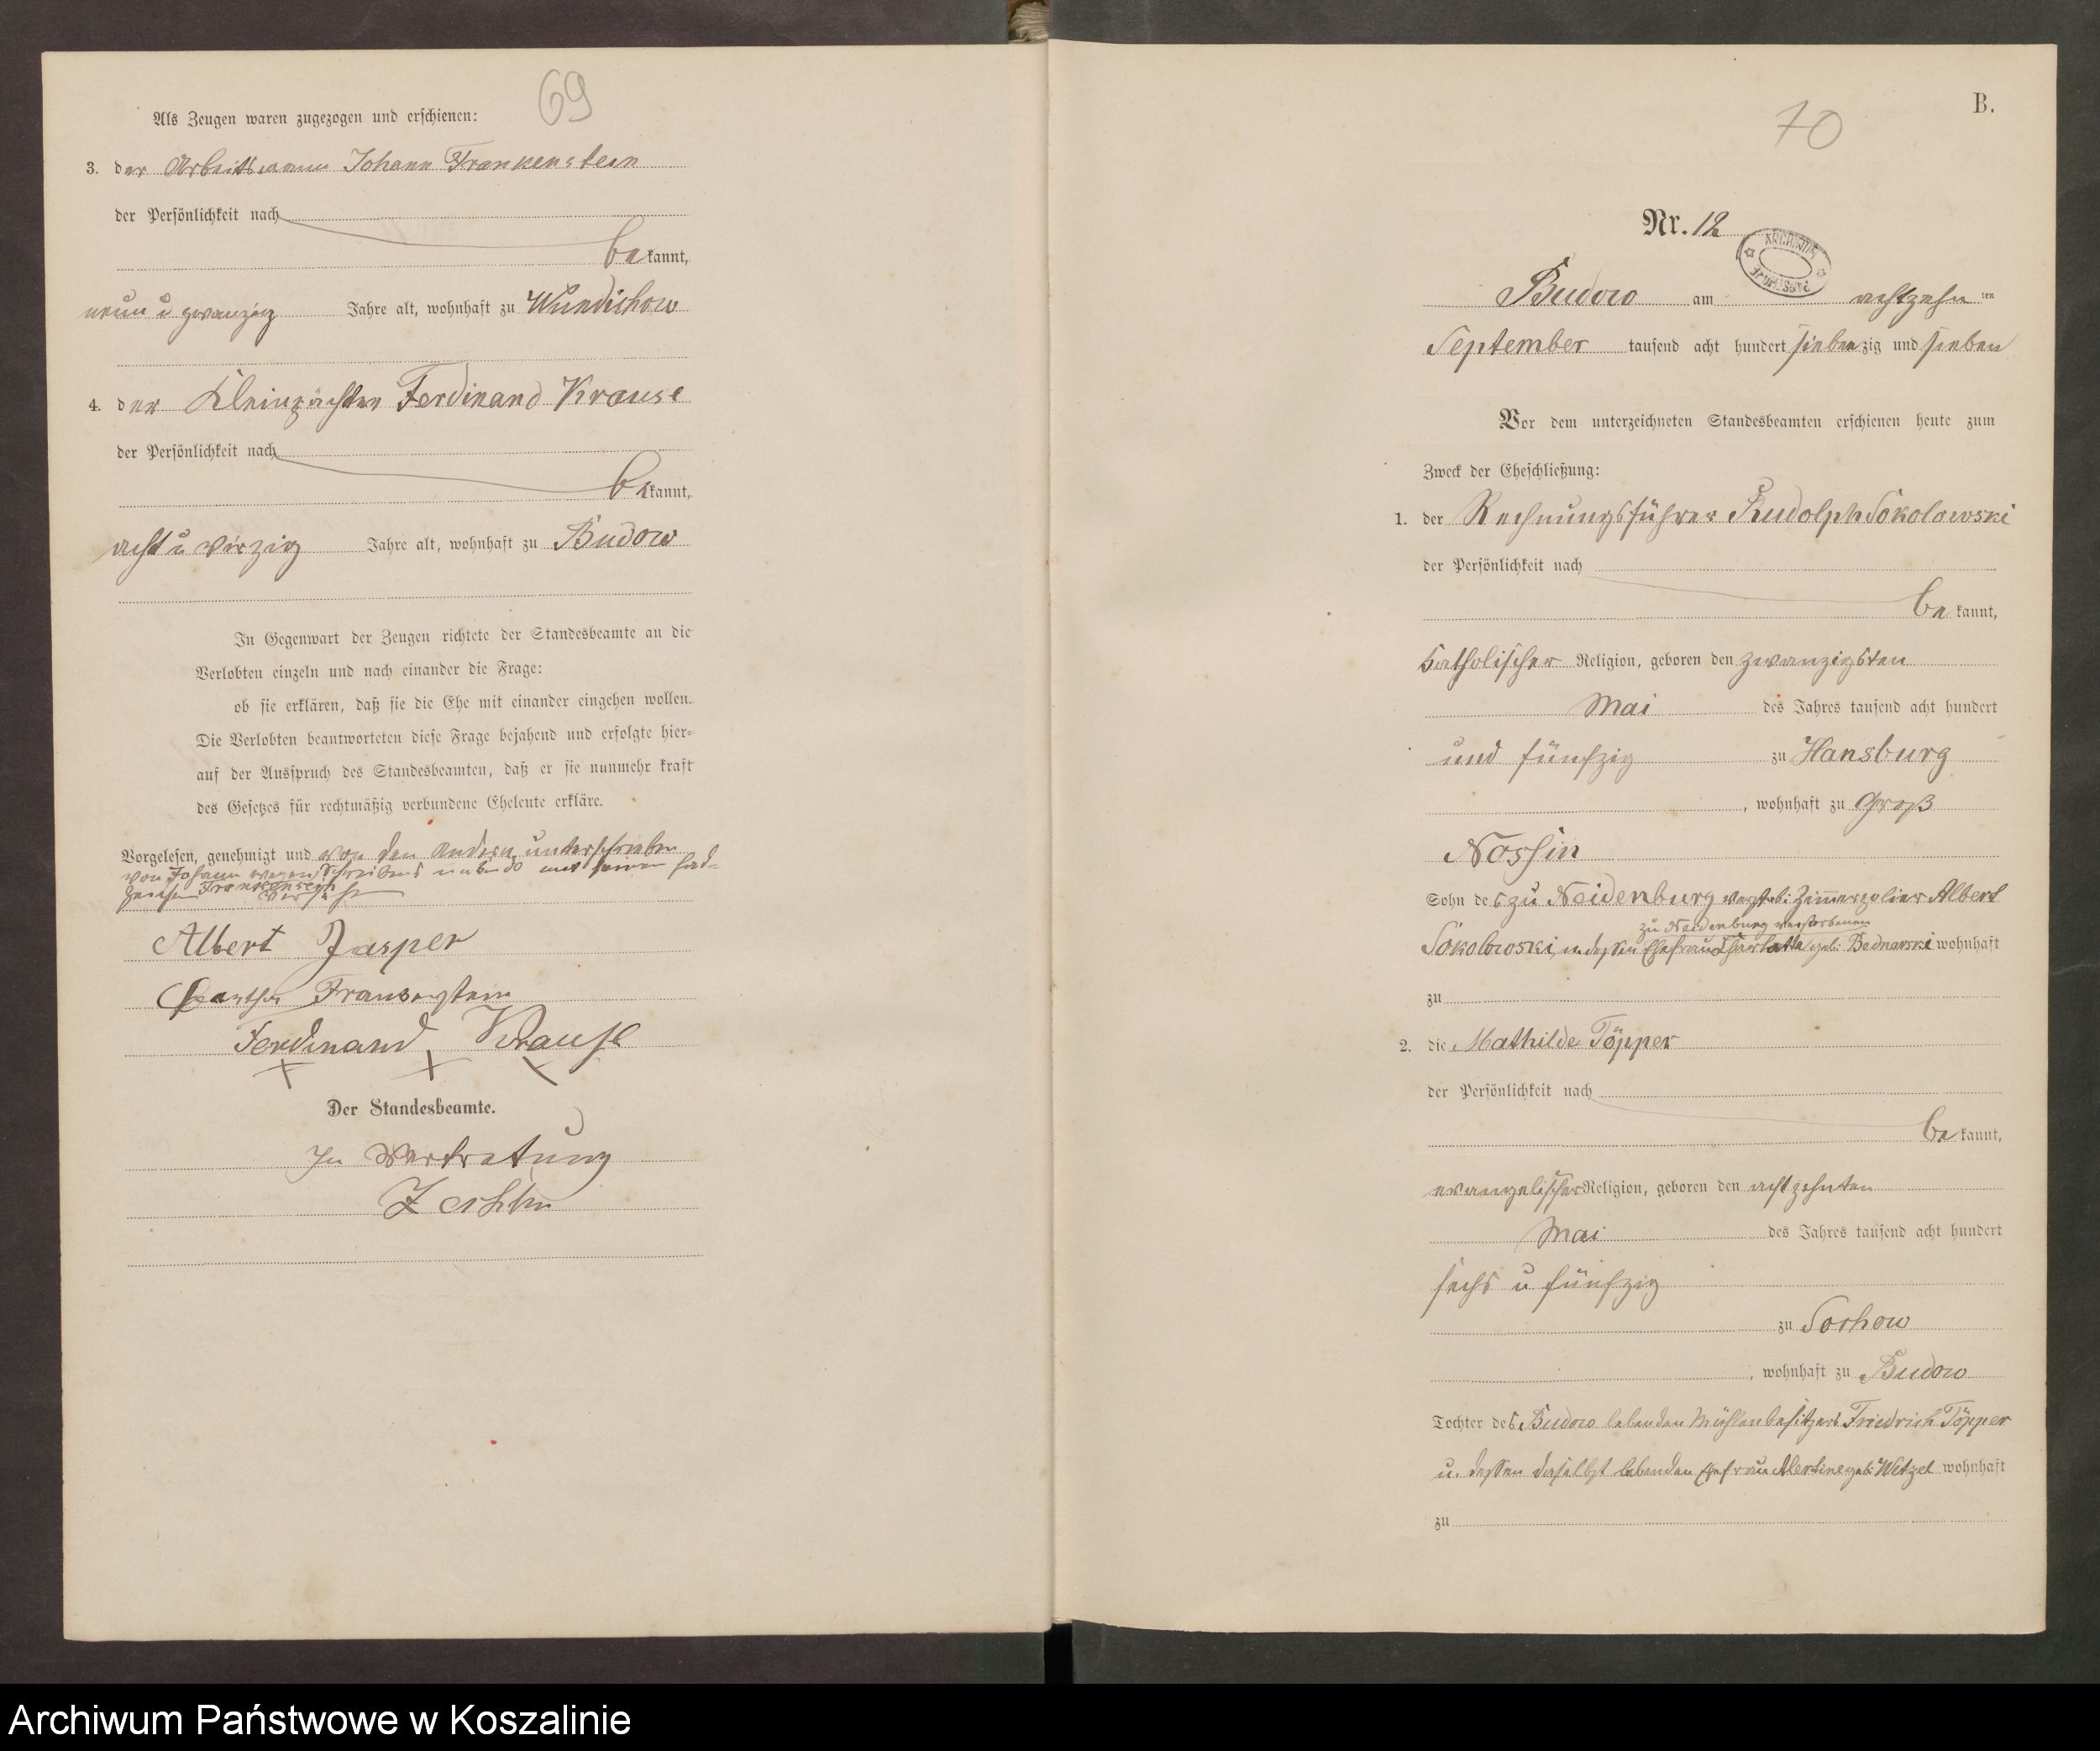 69
Als Zeugen waren zugezogen und erschienen:
3. der Arbeitsmann Johann Frankenstein
der Persönlichkeit nach
bekannt,
neun u zwanzig Jahre alt, wohnhaft zu Wundichow
4. der Kleinpächter Ferdinand Krause
der Persönlichkeit nach
bekannt,
acht u vierzig Jahre alt, wohnhaft zu Budow
In Gegenwart der Zeugen richtete der Standesbeamte an die
Verlobten einzeln und nach einander die Frage:
ob sie erklären, daß sie die Ehe mit einander eingehen wollen.
Die Verlobten beantworteten diese Frage bejahend und erfolgte hier-
auf der Ausspruch des Standesbeamten, daß er sie nunmehr kraft
des Gesetzes für rechtmäßig verbundene Eheleute erkläre.
Vorgelesen, genehmigt und von den Andern unterschrieben
von Johann wegen Schreibens
Frankenstein
Albert Jasper
Ferdinand Krause
Der Standesbeamte.
In Vertretung
B.
70
Nr. 12
ARCHIWUM PAŃSTWOWE
Budow am achtzehn ten
September tausend acht hundert siebenzig und sieben
Vor dem unterzeichneten Standesbeamten erschienen heute zum
Zweck der Eheschließung:
1. der Rechnungsführer Rudolph Sokolowski
der Persönlichkeit nach
bekannt,
katholischer Religion, geboren den zwanzigsten
Mai des Jahres tausend acht hundert
und fünfzig zu Hansburg
, wohnhaft zu Groß
Nossin
Sohn des zu Neidenburg verstorb: Zimmerpolier Albert
zu Neidenburg verstorbenen
Sokolowski, u. dessen Ehefrau Charlotte geb: Bednarski wohnhaft
zu
2. die Mathilde Töpper
der Persönlichkeit nach
bekannt,
evangelischer Religion, geboren den achtzehnten
Mai des Jahres tausend acht hundert
sechs u fünfzig
zu Sochow
, wohnhaft zu Budow
Tochter des Budow lebenden Mühlenbesitzers Friedrich Töpper
u. dessen daselbst lebenden Ehefrau Albertine geb: Witzel wohnhaft
zu
Archiwum Państwowe w Koszalinie